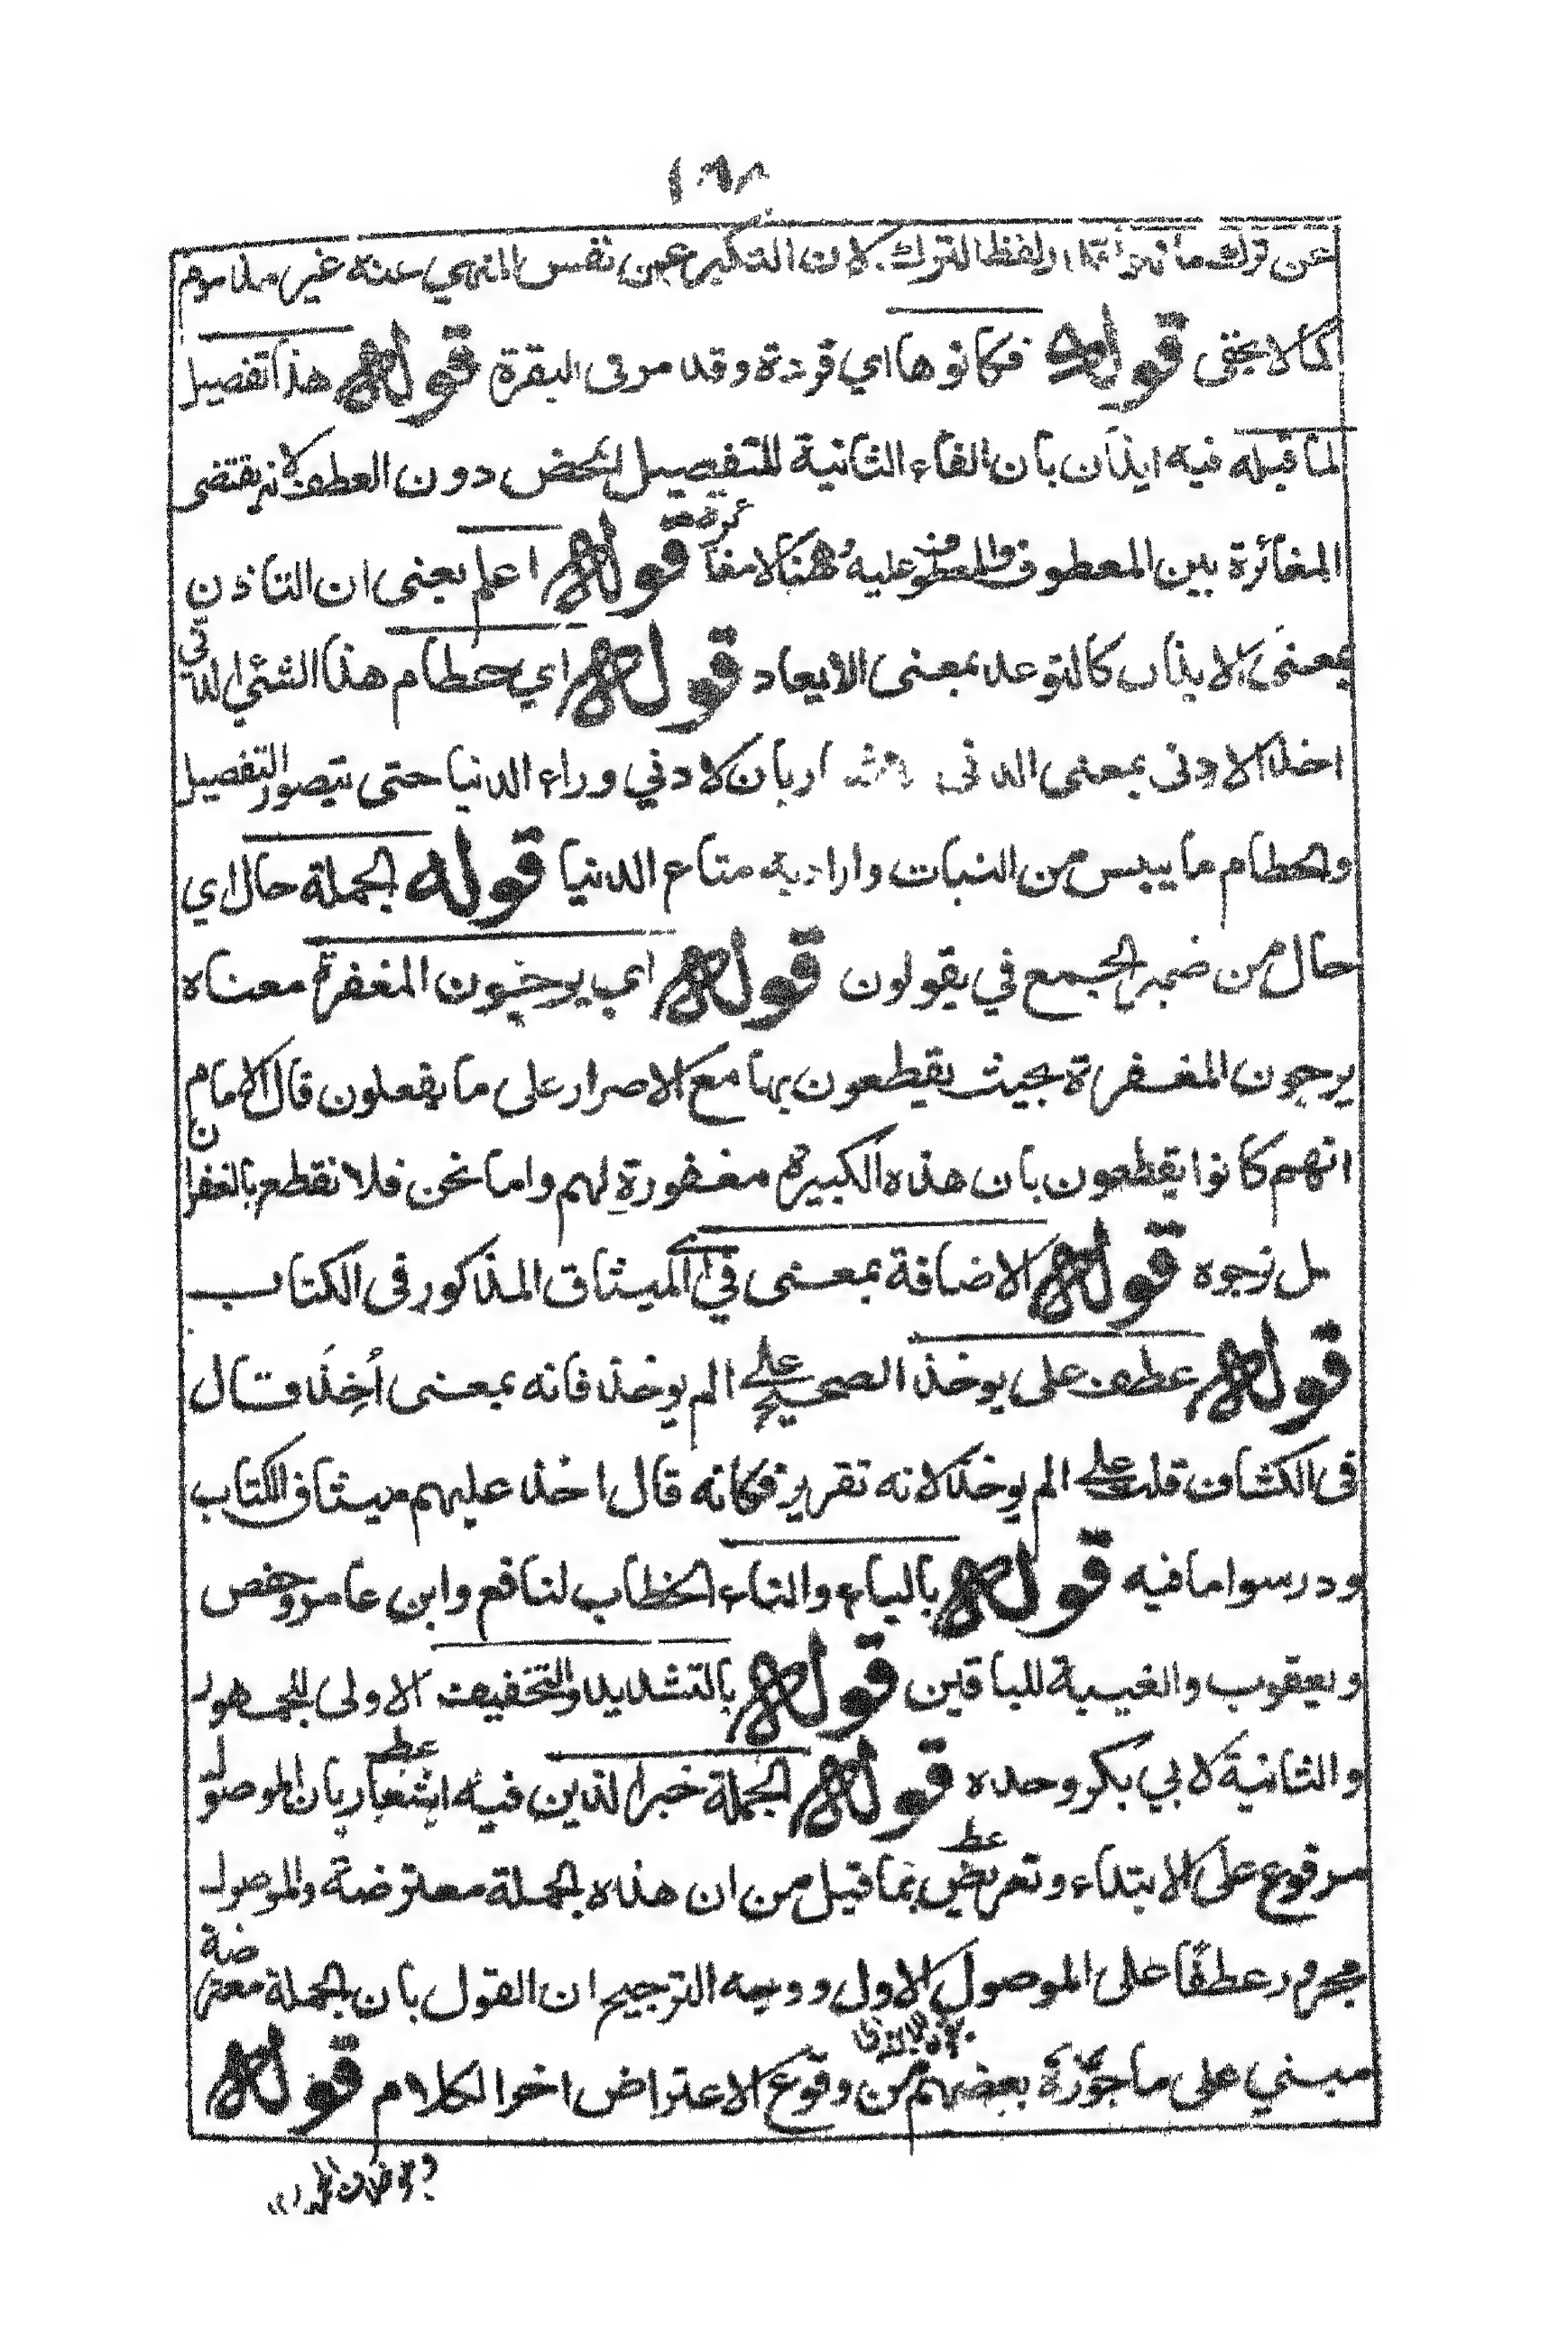 عن ترك ما نهوا لفظ الترك لان التكبر عين نفس المنهي عنه غير ملايم
كما لا يخفى قوله فكانوها اي قردة وقد مر في البقرة قوله هذا تفصيل
لما قبله فيه ايذان بان الفاء الثانية للتفصيل المحض دون العطف لانه يقتضى
المغائرة بين المعطوف والمعطوف عليه وههنا لا مغائرة قوله اعلم يعنى ان التاذن
بمعنى الايذان كالتوعد بمعنى الايعاد قوله اي حطام هذا الشئ الدني
اخذ الادنى بمعنى الدنى بان لا دني وراء الدنيا حتى يتصور التفصيل
والحطام ما ييبس من النبات واراد به متاع الدنيا قوله الجملة حال اي
حال من ضمير الجمع في يقولون قوله اي يرجون المغفرة معناه
يرجون المغفرة بحيث يقطعون بها مع الاصرار على ما يفعلون قال الامام
انهم كانوا يقطعون بان هذه الكبيرة مغفورة لهم واما نحن فلا نقطع بالغفران
بل نرجوه قوله الاضافة بمعنى في اى الميثاق المذكور فى الكتاب
قوله عطف على يوخذ الصحيح على الم يوخذ فانه بمعنى أُخِذَ قال
فى الكشاف قلت على الم يوخذ لانه تقرير فكانه قال اخذ عليهم ميثاق الكتاب
ودرسوا ما فيه قوله بالياء والتاء الخطاب لنافع وابن عامر وحفص
ويعقوب والغيبة للباقين قوله بالتشديد والتخفيف الاولى للجمهور
والثانية لابي بكر وحده قوله الجملة خبر الذين فيه اشعار بان الموصول
مرفوع على الابتداء وتعريض على بما قيل من ان هذه الجملة معترضة والموصول
مجرور عطفًا على الموصول الاول ووجه الترجيح ان القول بان الجملة معترضة
مبني على ما جوزه بعضهم من وقوع الاعتراض اخر الكلام قوله